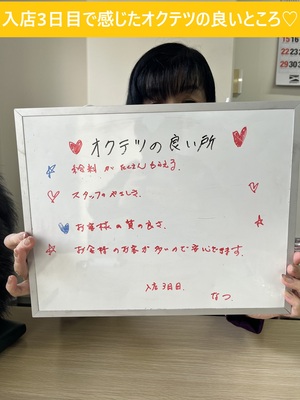 入店3日目で感じたオクテツの良いところ♡
15 16
オクテツの良い所
給料がたくさんもらえる.
スタッフのやさしさ.
お客様の質の良さ.
お金持のお客が多いので安心できます.
入店3日目.
なつ